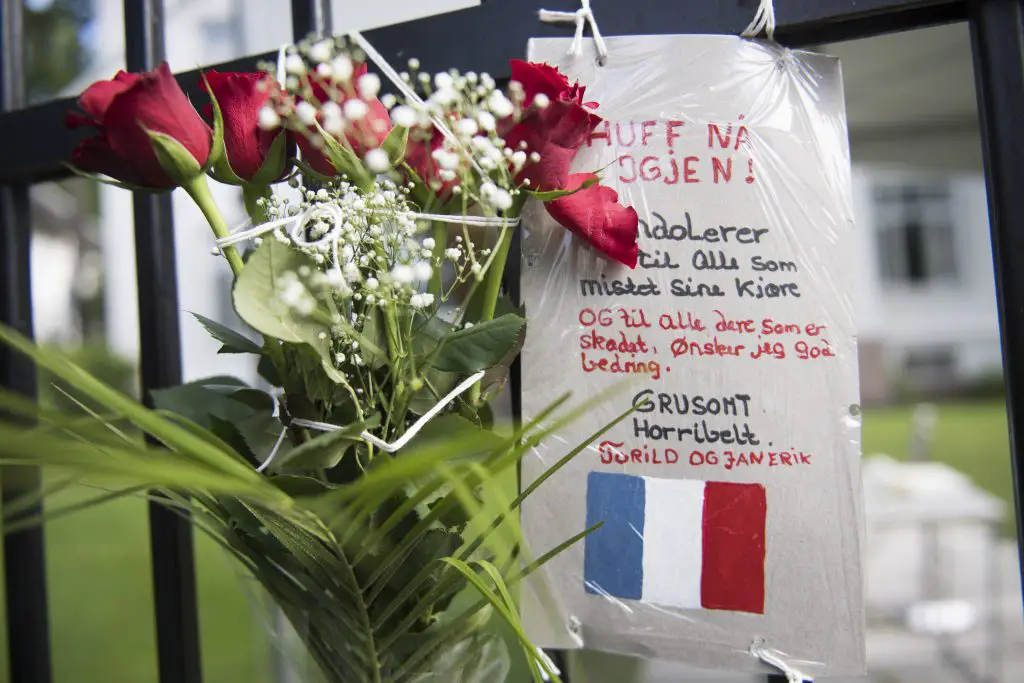 HUFF NÅ
IGJEN!
ndoLerer
til Alle som
mistet Sine Kjære
OG til Alle dere som er
skadet, Ønsker jeg god
bedring.
GRUSOMT
Horribelt.
TORILD OG JAN ERIK